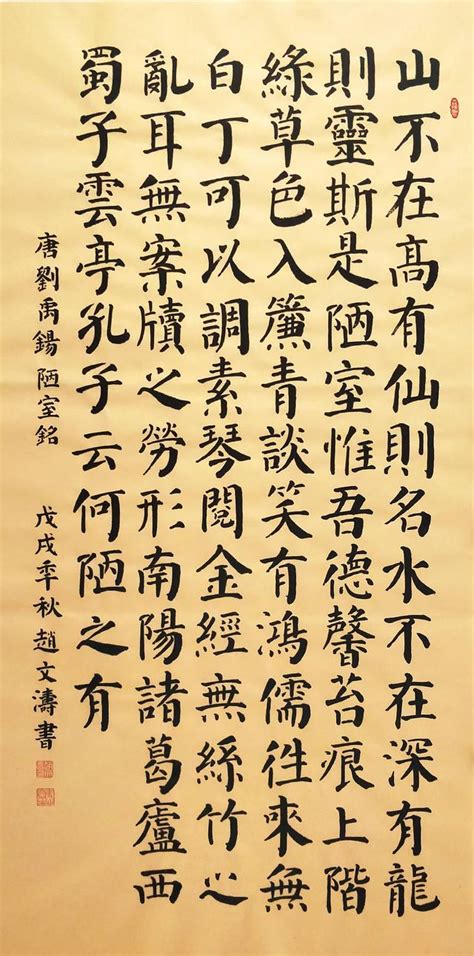 山不在髙有仙則名水不在深有龍
則靈斯是陋室惟吾德馨苔痕上階
綠草色入簾青談笑有鴻儒徃來無
白丁可以調素琴閱金經無絲竹之
亂耳無案牘之勞形南陽諸葛廬西
蜀子雲亭孔子云何陋之有
唐劉禹錫陋室銘 戊戌季秋趙文濤書